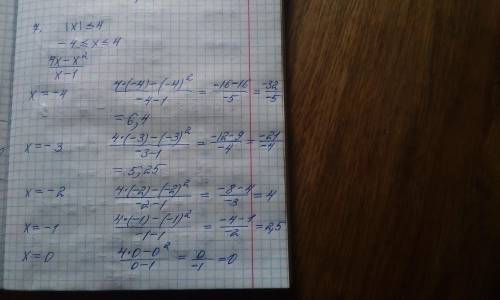 7. |x| ≤ 4
-4 ≤ x ≤ 4
(4x - x²)/(x - 1)
x = -4 (4·(-4) - (-4)²)/(-4-1) = (-16-16)/(-5) = (-32)/(-5)
= 6,4
x = -3 (4·(-3) - (-3)²)/(-3-1) = (-12-9)/(-4) = (-21)/(-4)
= 5,25
x = -2 (4·(-2) - (-2)²)/(-2-1) = (-8-4)/(-3) = 4
x = -1 (4·(-1) - (-1)²)/(-1-1) = (-4-1)/(-2) = 2,5
x = 0 (4·0 - 0²)/(0-1) = 0/(-1) = 0